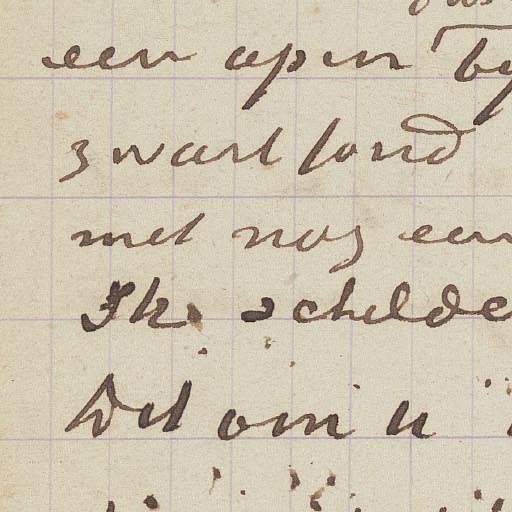 een open by
zwart fond
met nog een
Ik schilde
Dit om u